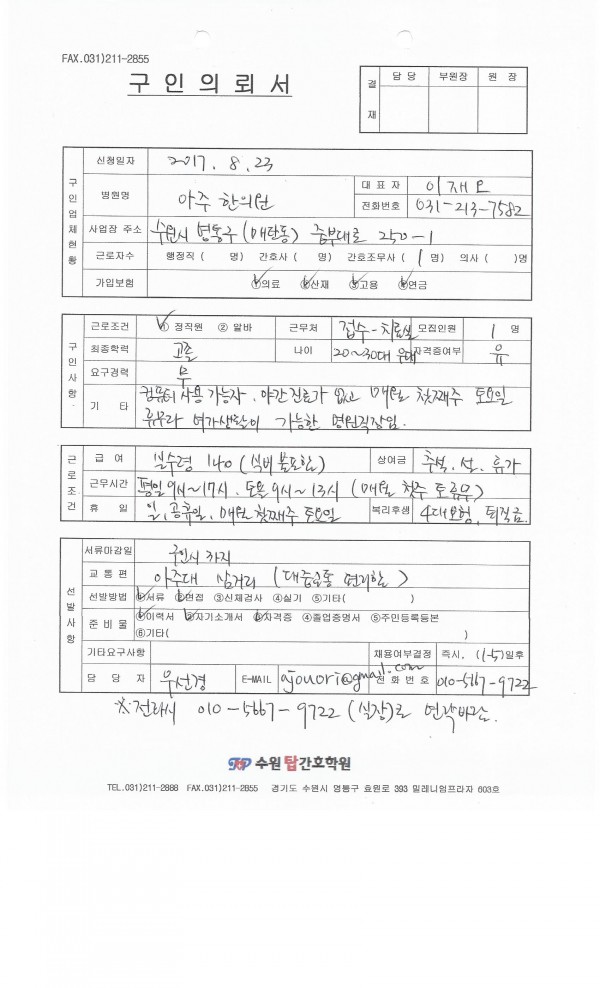 FAX.031)211-2855
구 인 의 뢰 서
결 재 담 당 부원장 원 장
구인업체현황
신청일자 2017. 8. 23
병원명 아주 한의원 대 표 자 이재
전화번호 031-213-7582
사업장 주소 수원시 영통구 (매탄동) 중부대로 250-1
근로자수 행정직 ( 명) 간호사 ( 명) 간호조무사 ( 1 명) 의사 ( )명
가입보험 ①의료 ②산재 ③고용 ④연금
구인사항
근로조건 ① 정직원 ② 알바 근무처 접수-치료실 모집인원 1 명
최종학력 고졸 나이 20~30대 우대 자격증여부 유
요구경력 무
기 타 컴퓨터 사용 가능자. 야간진료가 없고 매월 첫째주 토요일
휴무라 여가생활이 가능한 병원직장임.
근로조건
급 여 실수령 140 (식비 불포함) 상여금 추석. 설. 휴가
근무시간 평일 9시~17시. 토요 9시~13시 (매월 첫주 토휴무)
휴 일 일, 공휴일, 매월 첫째주 토요일 복리후생 4대보험, 퇴직금
선발사항
서류마감일 구인시 까지
교 통 편 아주대 삼거리 (대중교통 편리함)
선발방법 ①서류 ②면접 ③신체검사 ④실기 ⑤기타( )
준 비 물 ①이력서 ②자기소개서 ③자격증 ④졸업증명서 ⑤주민등록등본
⑥기타( )
기타요구사항 채용여부결정 즉시. (1-5)일후
담 당 자 우선경 E-MAIL ajouori@gmail.com 전 화 번 호 010-5667-9722
※전화시 010-5667-9722 (실장)로 연락바람.
TOP 수원 탑간호학원
TEL.031)211-2888 FAX.031)211-2855 경기도 수원시 영통구 효원로 393 밀레니엄프라자 603호